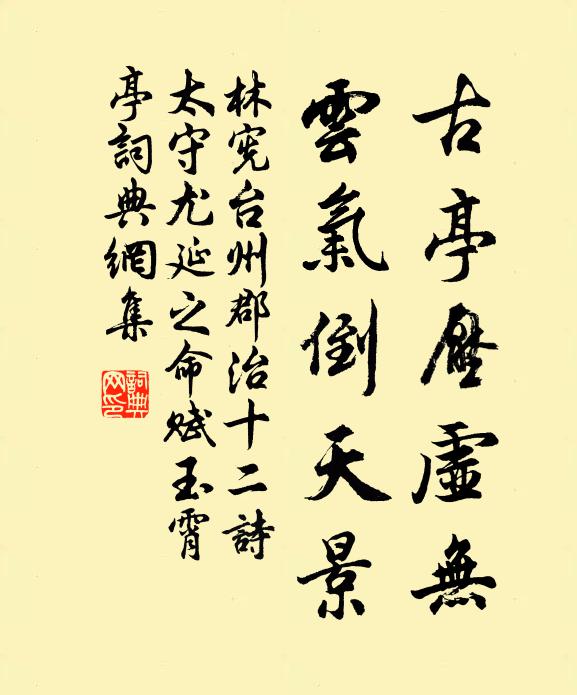 古亭壓虛無
雲氣倒天景
林憲台州郡治十二詩
太守尤延之命賦玉霄
亭詞典網集
詞典
网印